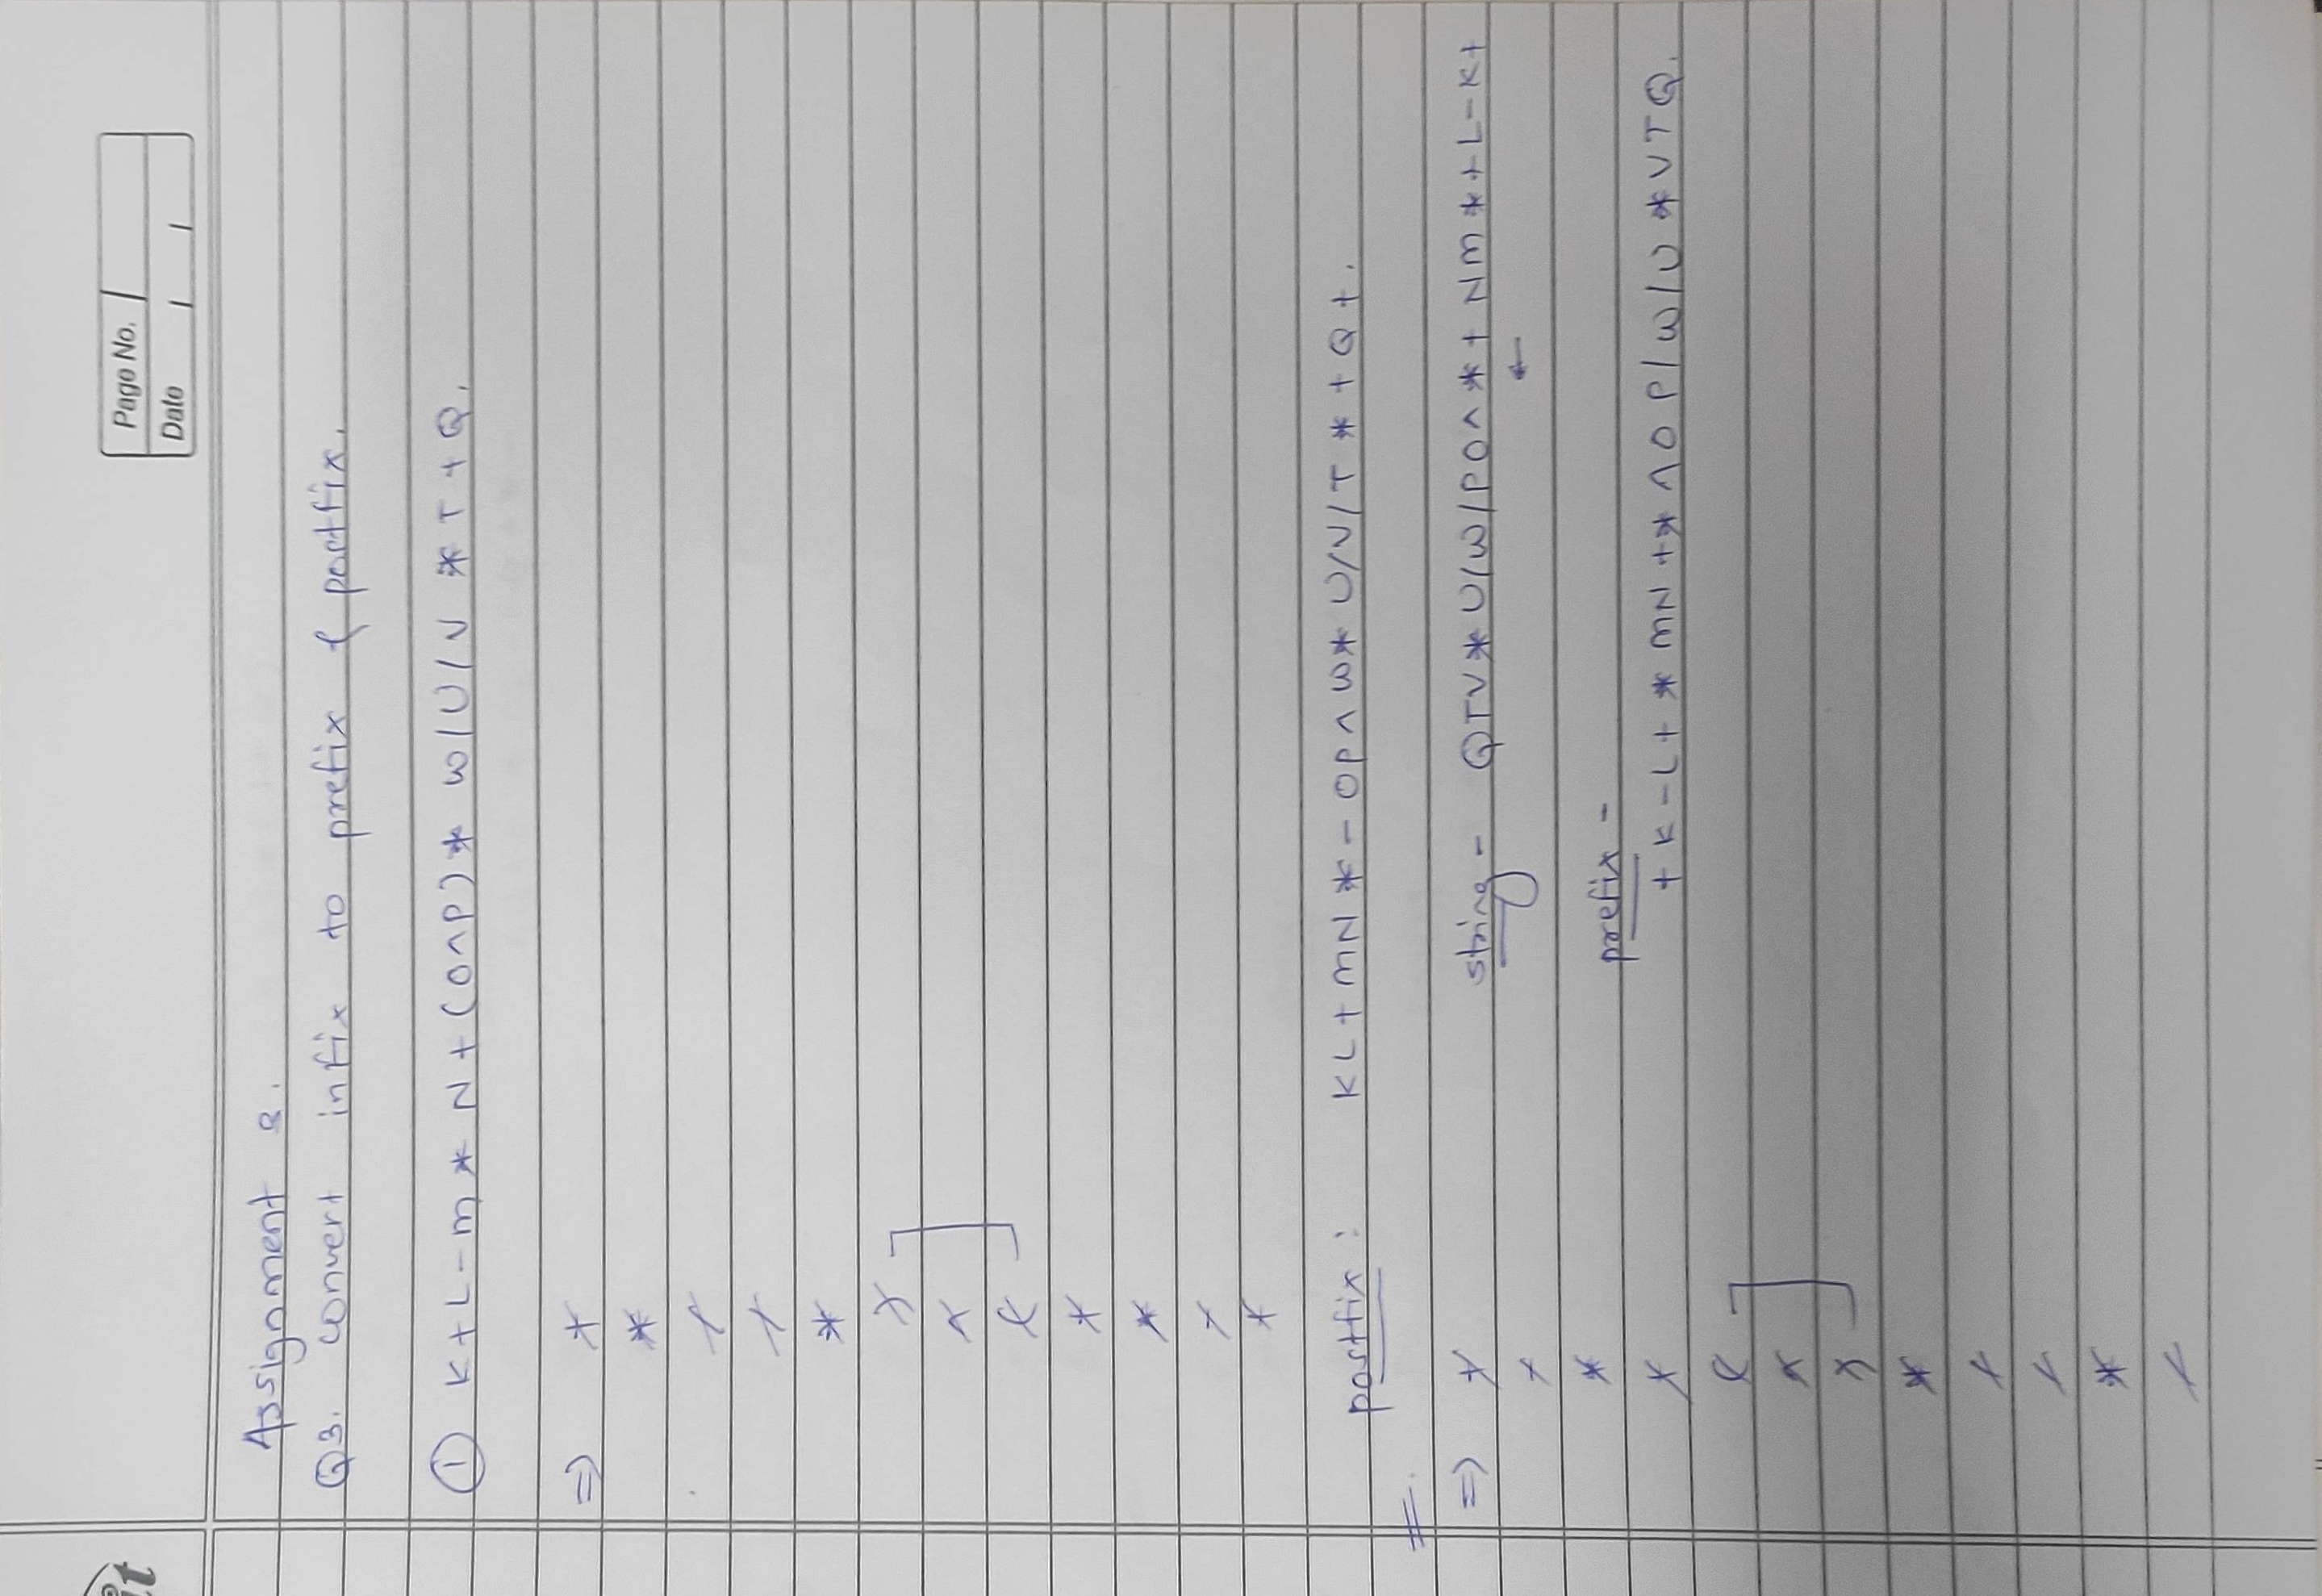 it
Page No.
Date / /
Assignment 2.
Q3. convert infix to prefix & postfix.
① K+L-M*N+(O^P)*W/U/V*T+Q.
=> +
*
/
/
*
)
^
(
+
*
-
+
postfix: KL+MN*-OP^W*U/V/T*+Q+.
=> + string - QTV*U/W/PO^*+NM*+L-K+
+ ←
*
prefix -
+K-L+*MN+*^OP/W/U*VTQ.
(
^
)
*
/
/
*
+